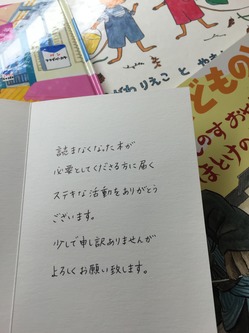 がわりえこ と やま
どもの
のす おや
まとけの
読まなくなった本が
必要としてくださる方に届く
ステキな活動をありがとう
ございます。
少しで申し訳ありませんが
よろしくお願い致します。